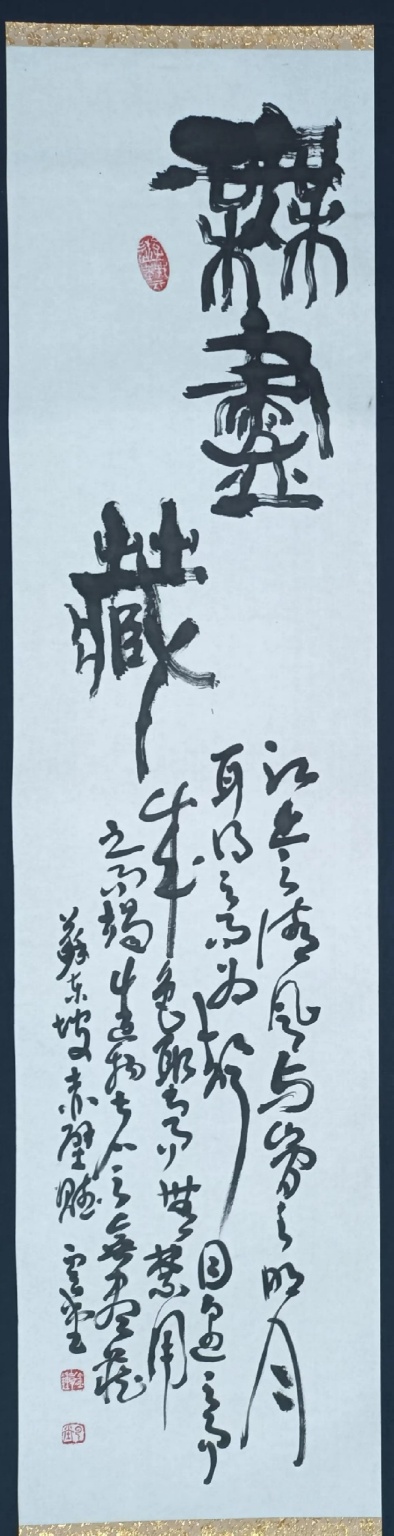 無盡藏
江上之清風与山間之明月
耳得之而為聲目遇之而
成色取之無禁用
之不竭是造物者之無尽藏
蘇東坡赤壁賦